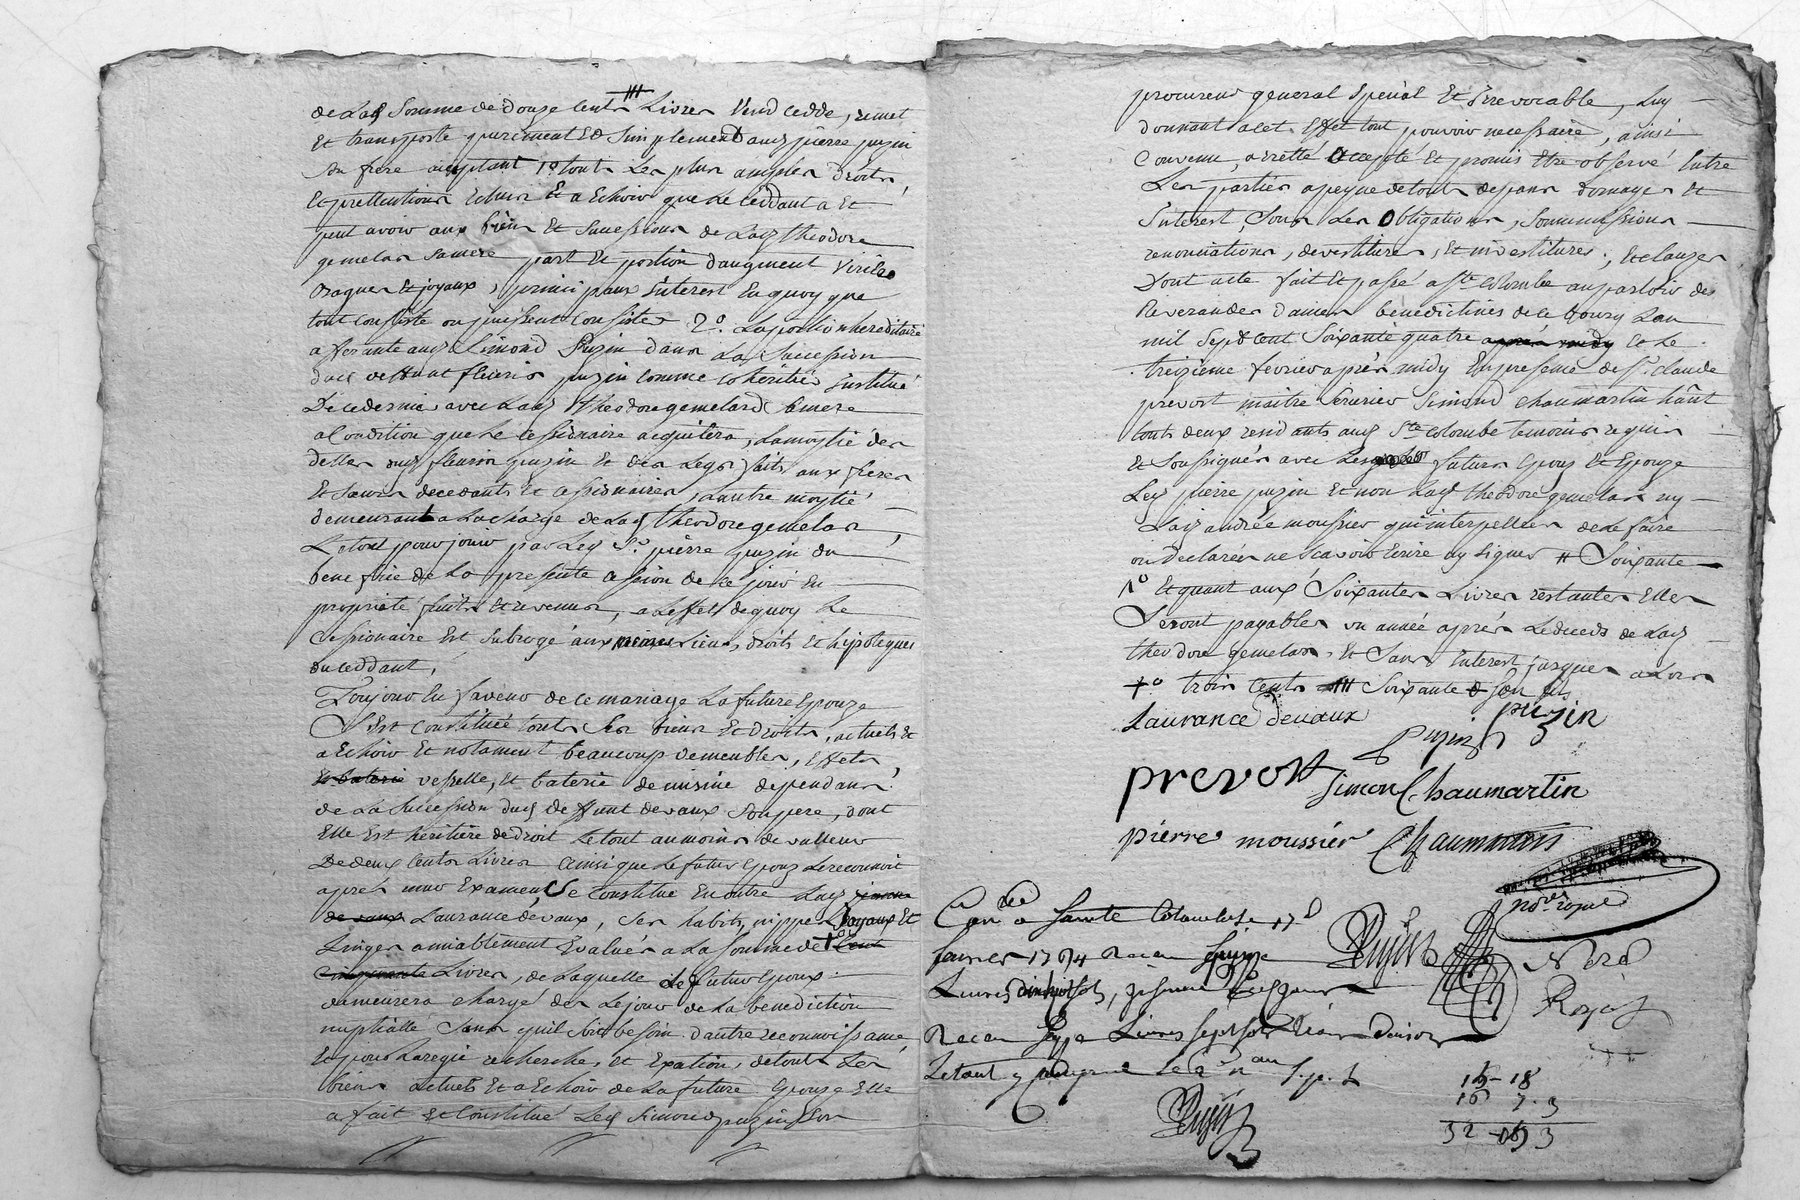 de Lad Somme de douze Cents Livres Vend cedde, remet
Et transporte purement Et Simplement aud pierre puzin
Son frere acceptant 1° tout Les plus amples droits,
Et prettentions Echus Et a Echoir que Le Ceddant a Et
peut avoir aux biens Et Succession de Lad theodore
gemelas Samere part Et portion daugment Virile
Bagues Et joyaux, principaux interest En quoy que
tout consiste ou puissent Consister 2° La portion hereditaire
aferante aud Simond Puzin dans La Succession
dud deffunt fleuris puzin comme Coheritier institué
De ce dernier avec Lad theodore gemelas Samere
a Condition que Le Cessionaire acquitera, La moytié des
dettes dud fleuris puzin Et des Legs faits aux freres
Et Sœurs decedants Et Cessionaires, Lautre moytié
demeurant a La charge de Lad theodore gemelas,
Le tout pour jouir par Led Sr. pierre puzin du
benefice de La presente Cession de ce jour En
proprieté fruits Et revenus, a Leffet de quoy Le
Cessionaire Est Subrogé aux memes Lieux, droits Et hipoteques
du ceddant,
Toujours En faveur de ce mariage La future Epouze
S Est Constituée touts Ses biens Et Droits, actuels Et
a Echoir Et notament beaucoup de meubles, Effets,
Et baterie vesselle, Et baterie de cuisine dependans
de La Succession dud deffunt devaux Son pere, dont
Elle Est heritiere de droit Le tout au moins de valleur
De deux Cents Livres ainsi que Le futur Epoux Le reconnoit
aprés mur Examen, Se Constitue En outre Lad
de vaux Laurance devaux, Ses habits, nippes Joyaux Et
Linges amiablement Evalués a La Somme de +° Cent
Cinquante Livres, de Laquelle Le futur Epoux
demeurera chargé des Le jour de La benediction
nuptialle Sans quil Soit besoin dautre reconnoissance,
Et pour La regie recherche, Et Exation, de touts Les
biens actuels Et a Echoir de La future Epouze Elle
a fait Et Constitué Led Simond puzin Son
procureur general Special Et irrevocable, Luy
donnant a cet Effet tout pouvoir necessaire, ainsi
Convenu, arretté accepté Et promis Etre observé Entre
Les parties a peyne de tout depans domages Et
interest, Sous Les Obligations, Soummissions
renonciations, devestitures, Et investitures, Et clauzes
Dont acte fait Et passé a Ste Colombe au parloir des
Reverandes dames benedictines de ce bourg Lan
mil Sept cent Soixante quatre aprés midy Et Le
treizieme fevrier aprés midy En presence de Sr. claude
prevost maitre Serurier Simond chaumartin
touts deux residants aud Ste Colombe temoins requis
Et Soussignés avec Les futurs Epoux Et Epouze
Led pierre puzin Et non Lad theodore gemelas ny
Laiz andrée moussier qui interpellées de Le faire
on Declarées ne Scavoir Ecrire ny Signer # Soixante
1° Et quant aux Soixantes Livres restantes Elles
Seront payables un année aprés Le deceds de Lad
theodore gemelas, Et Sans Interest jusques a Lors
+° trois Cents Soixante
Laurance devaux puzin
Puzin
prevost Simon Chaumartin
pierre moussier Chaumartin
nore royal
Con lé a Sainte Colombe le 17
fevrier 1764 Recu Seize
Livres dixhuit sols,
Recu Seize Livres Sept Sols trois Deniers
Puzin
Nore
Royal
Le tout
Puzin
16-18
16 7.3
32 - 3